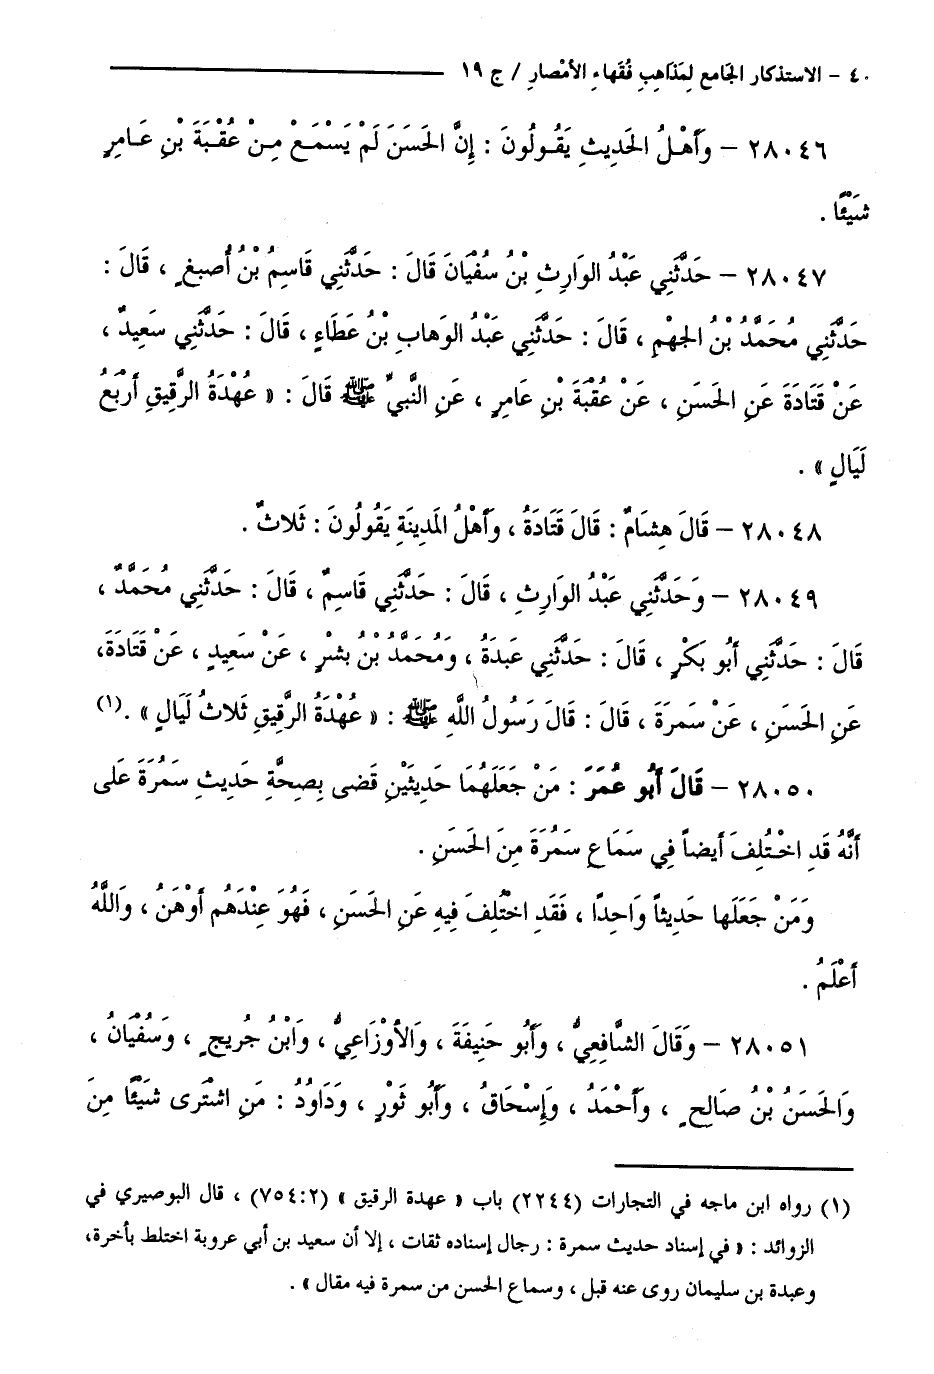 ٤٠ - الاستذكار الجَامع لِمَذاهِبِ فُقَهاءِ الأمْصارِ / ج ١٩
٢٨٠٤٦ - وَأَهْلُ الحَدِيثِ يَقُولُونَ : إِنَّ الحَسَنَ لَمْ يَسْمَعْ مِنْ عُقْبَةَ بْنِ عَامِرٍ
شَيْئًا .
٢٨٠٤٧ - حَدَّثَنِي عَبْدُ الوَارِثِ بْنُ سُفْيَانَ قَالَ : حَدَّثَنِي قَاسِمُ بْنُ أُصبغٍ ، قَالَ :
حَدَّثَنِي مُحَمَّدُ بْنُ الجهْمِ ، قَالَ : حَدَّثَنِي عَبْدُ الوَهابِ بْنُ عَطَاءٍ ، قَالَ : حَدَّثَنِي سَعِيدٌ ،
عَنْ قَتَادَةَ عَنِ الحَسَنِ ، عَنْ عُقْبَةَ بْنِ عَامِرٍ ، عَنِ النَّبيِّ ﷺ قَالَ : « عُهْدَةُ الرَّقِيقِ أَرْبَعُ
لَيَالٍ » .
٢٨٠٤٨ - قَالَ هِشَامٌ : قَالَ قَتَادَةُ ، وَأَهْلُ المَدِينَةِ يَقُولُونَ : ثَلاثٌ .
٢٨٠٤٩ - وَحَدَّثَنِي عَبْدُ الوَارِثِ ، قَالَ : حَدَّثَنِي قَاسِمٌ ، قَالَ : حَدَّثَنِي مُحَمَّدٌ ،
قَالَ : حَدَّثَنِي أَبُو بَكْرٍ ، قَالَ : حَدَّثَنِي عَبدَةُ ، وَمُحَمَّدُ بْنُ بشْرٍ ، عَنْ سَعِيدٍ ، عَنْ قَتَادَةَ،
عَنِ الحَسَنِ ، عَنْ سَمرَةَ ، قَالَ : قَالَ رَسُولُ اللَّهِ ﷺ : « عُهْدَةُ الرَّقِيقِ ثَلاثُ لَيَالٍ » .(١)
٢٨٠٥٠ - قَالَ أَبُو عُمَرَ : مَنْ جَعَلَهُمَا حَدِيثَيْنِ قَضى بِصِحَّةِ حَدِيثِ سَمُرَةَ عَلى
أَنَّهُ قَدِ اخْتُلِفَ أَيضاً فِي سَمَاعِ سَمُرَةَ مِنَ الحَسَنِ .
وَمَنْ جَعَلَها حَدِيثاً وَاحِدًا ، فَقَد اخْتُلِفَ فِيهِ عَنِ الحَسَنِ ، فَهُوَ عِنْدَهُم أَوْهَنُ ، وَاللَّهُ
أَعْلَمُ .
٢٨٠٥١ - وَقَالَ الشَّافِعِيُّ ، وَأَبُو حَنِيفَةَ ، وَالأَوْزَاعِيُّ ، وَابْنُ جُرِيجٍ ، وَسُفْيَانُ ،
وَالحَسَنُ بْنُ صَالِحٍ ، وَأَحْمَدُ ، وَإِسْحَاقُ ، وَأَبُو ثَوْرٍ ، وَدَاوُدُ : مَنِ اشْتَرى شَيْئًا مِنَ
(١) رواه ابن ماجه في التجارات (٢٢٤٤) باب « عهدة الرقيق » (٢:٧٥٤) ، قال البوصيري في
الزوائد : « في إسناد حديث سمرة : رجال إسناده ثقات ، إلا أن سعيد بن أبي عروبة اختلط بأخرة،
وعبدة بن سليمان روى عنه قبل ، وسماع الحسن من سمرة فيه مقال » .